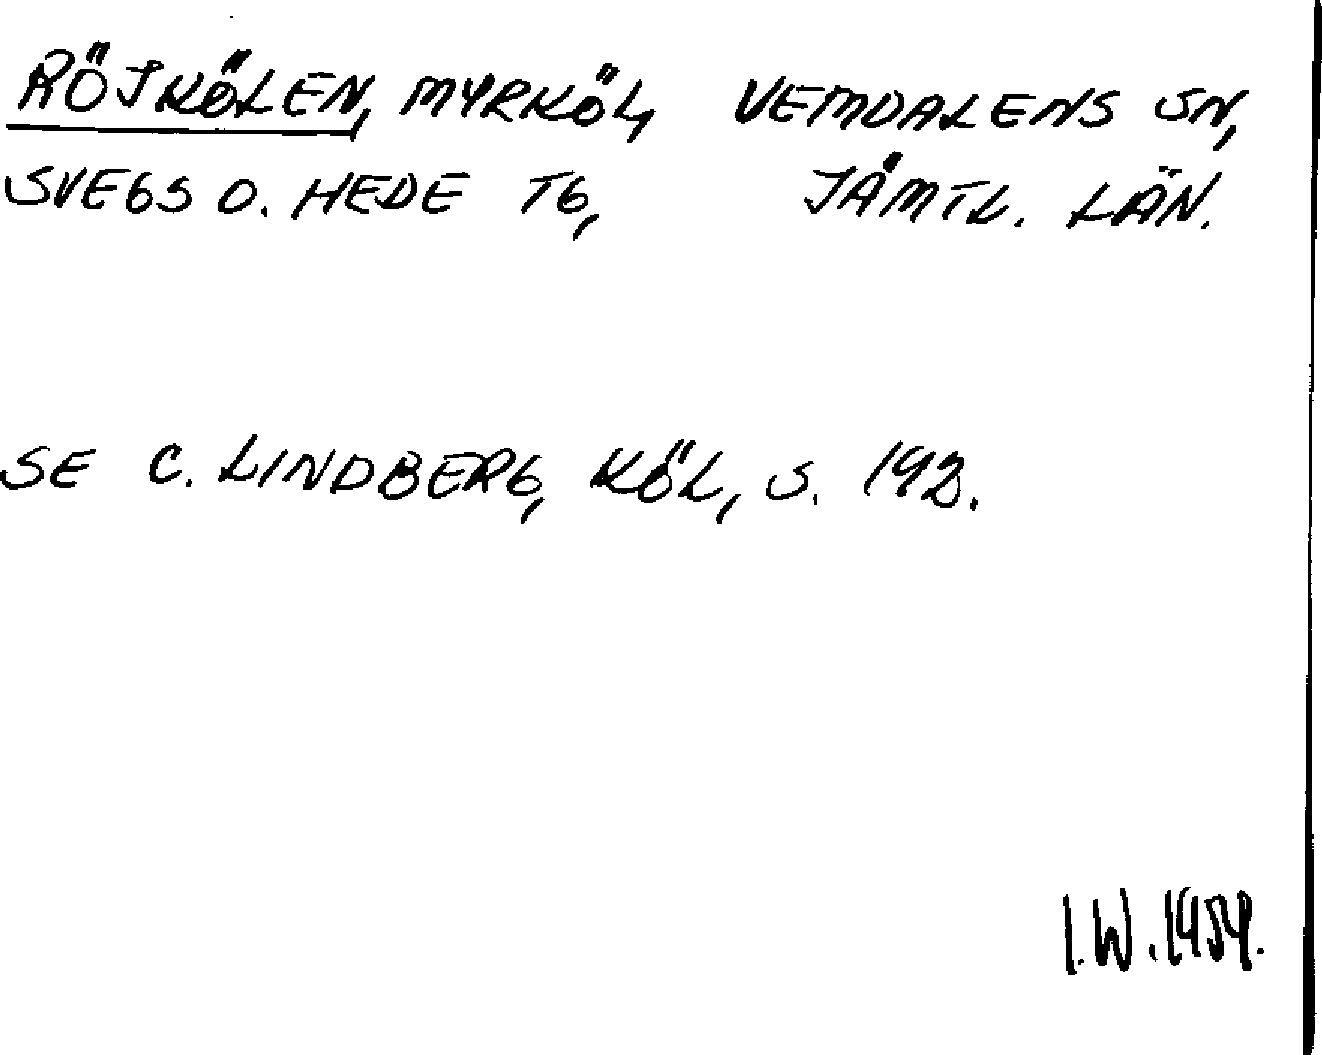 RÖJKÖLEN, MYRKÖL, VEMDALENS SN,
SVEGS O. HEDE TG, JÄMTL. LÄN.
SE C. LINDBERG, KÖL, S. 192.
I.W. 1954.